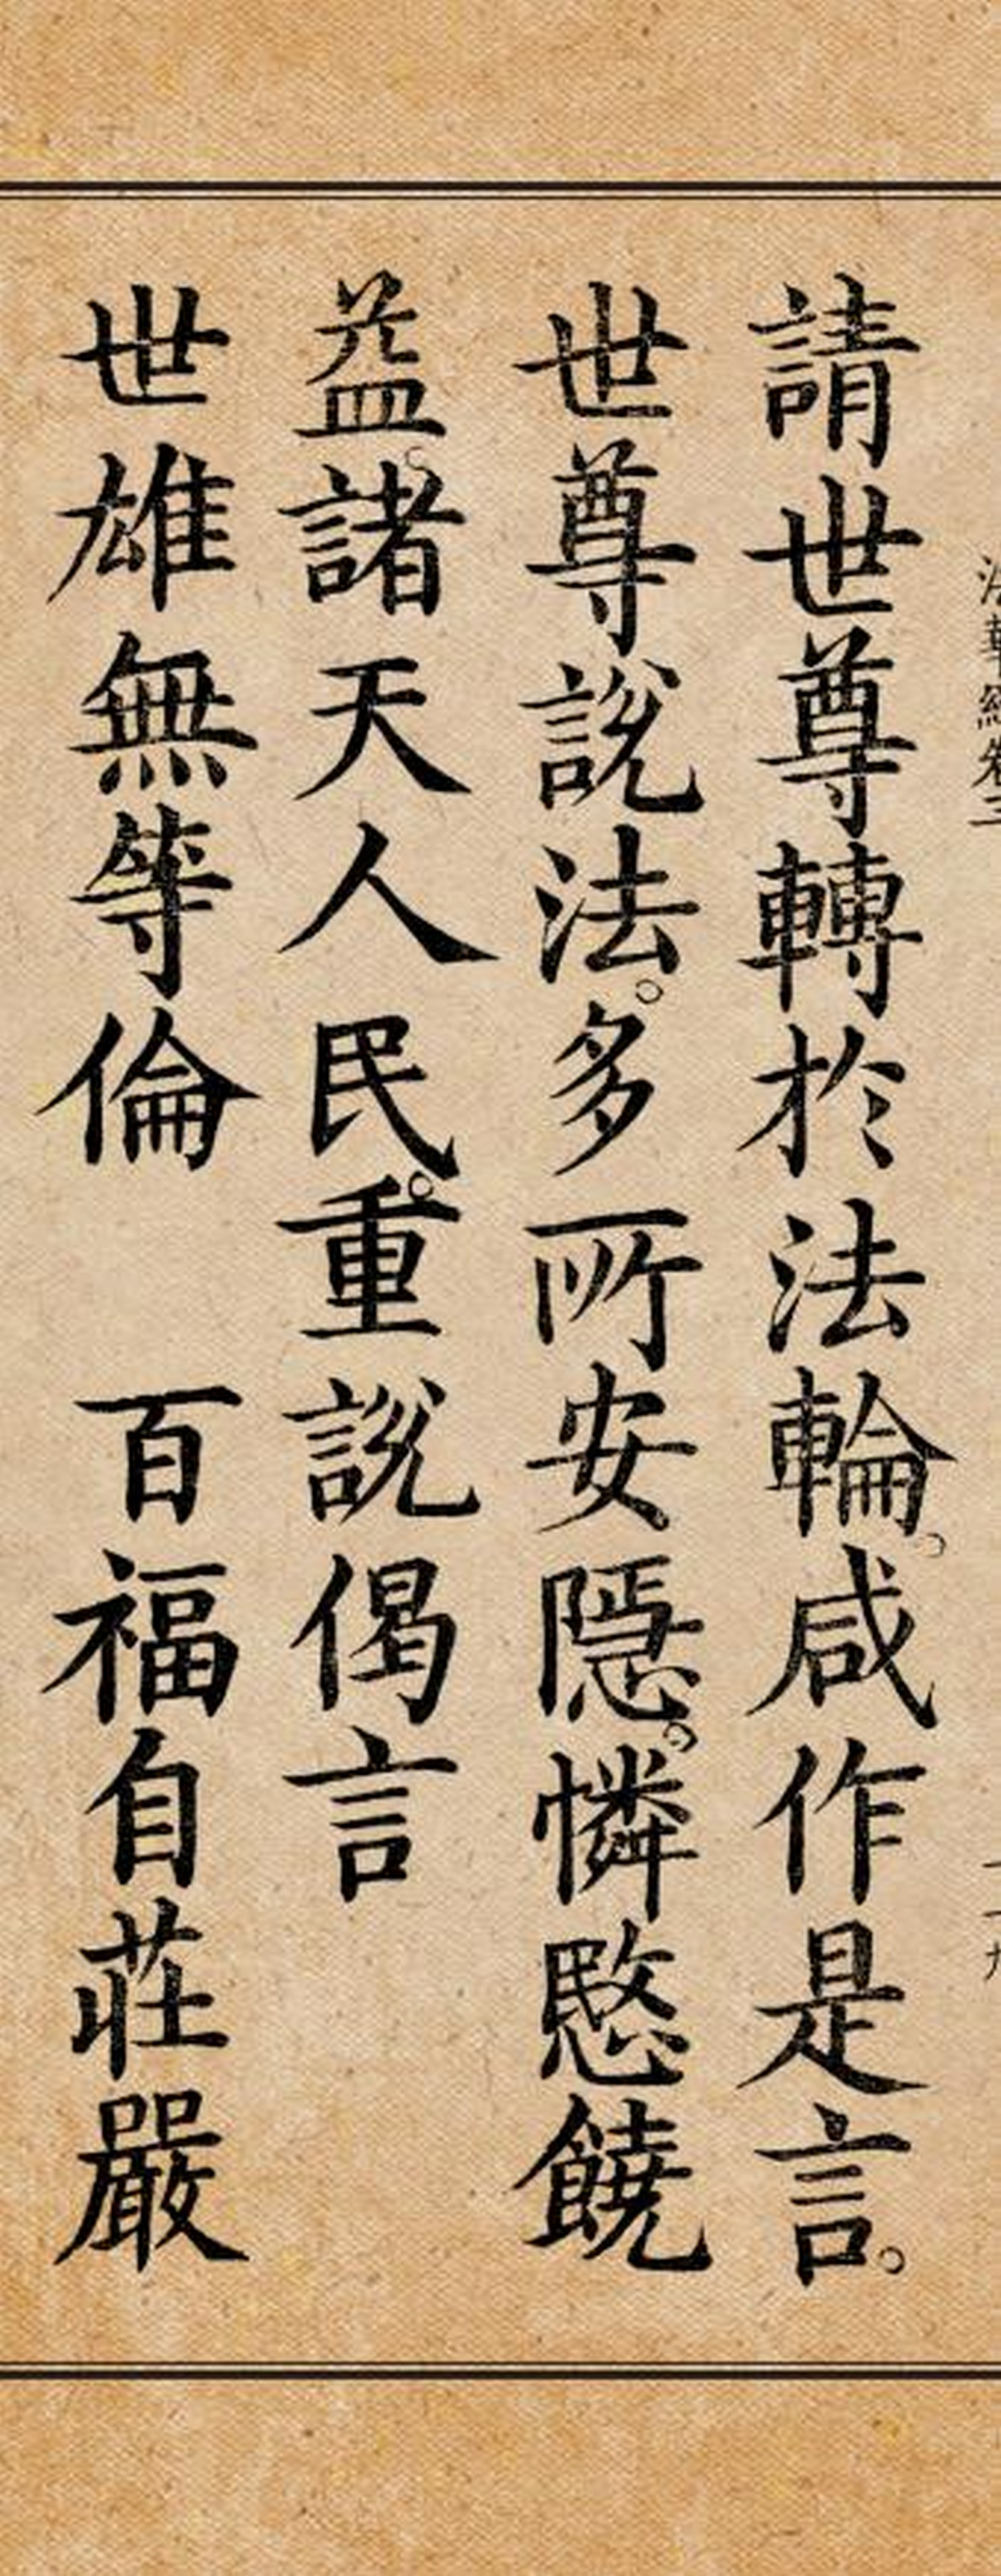 法華經卷三
請世尊轉於法輪。咸作是言。
世尊說法。多所安隱。憐愍饒
益。諸天人民。重說偈言
世雄無等倫　百福自莊嚴